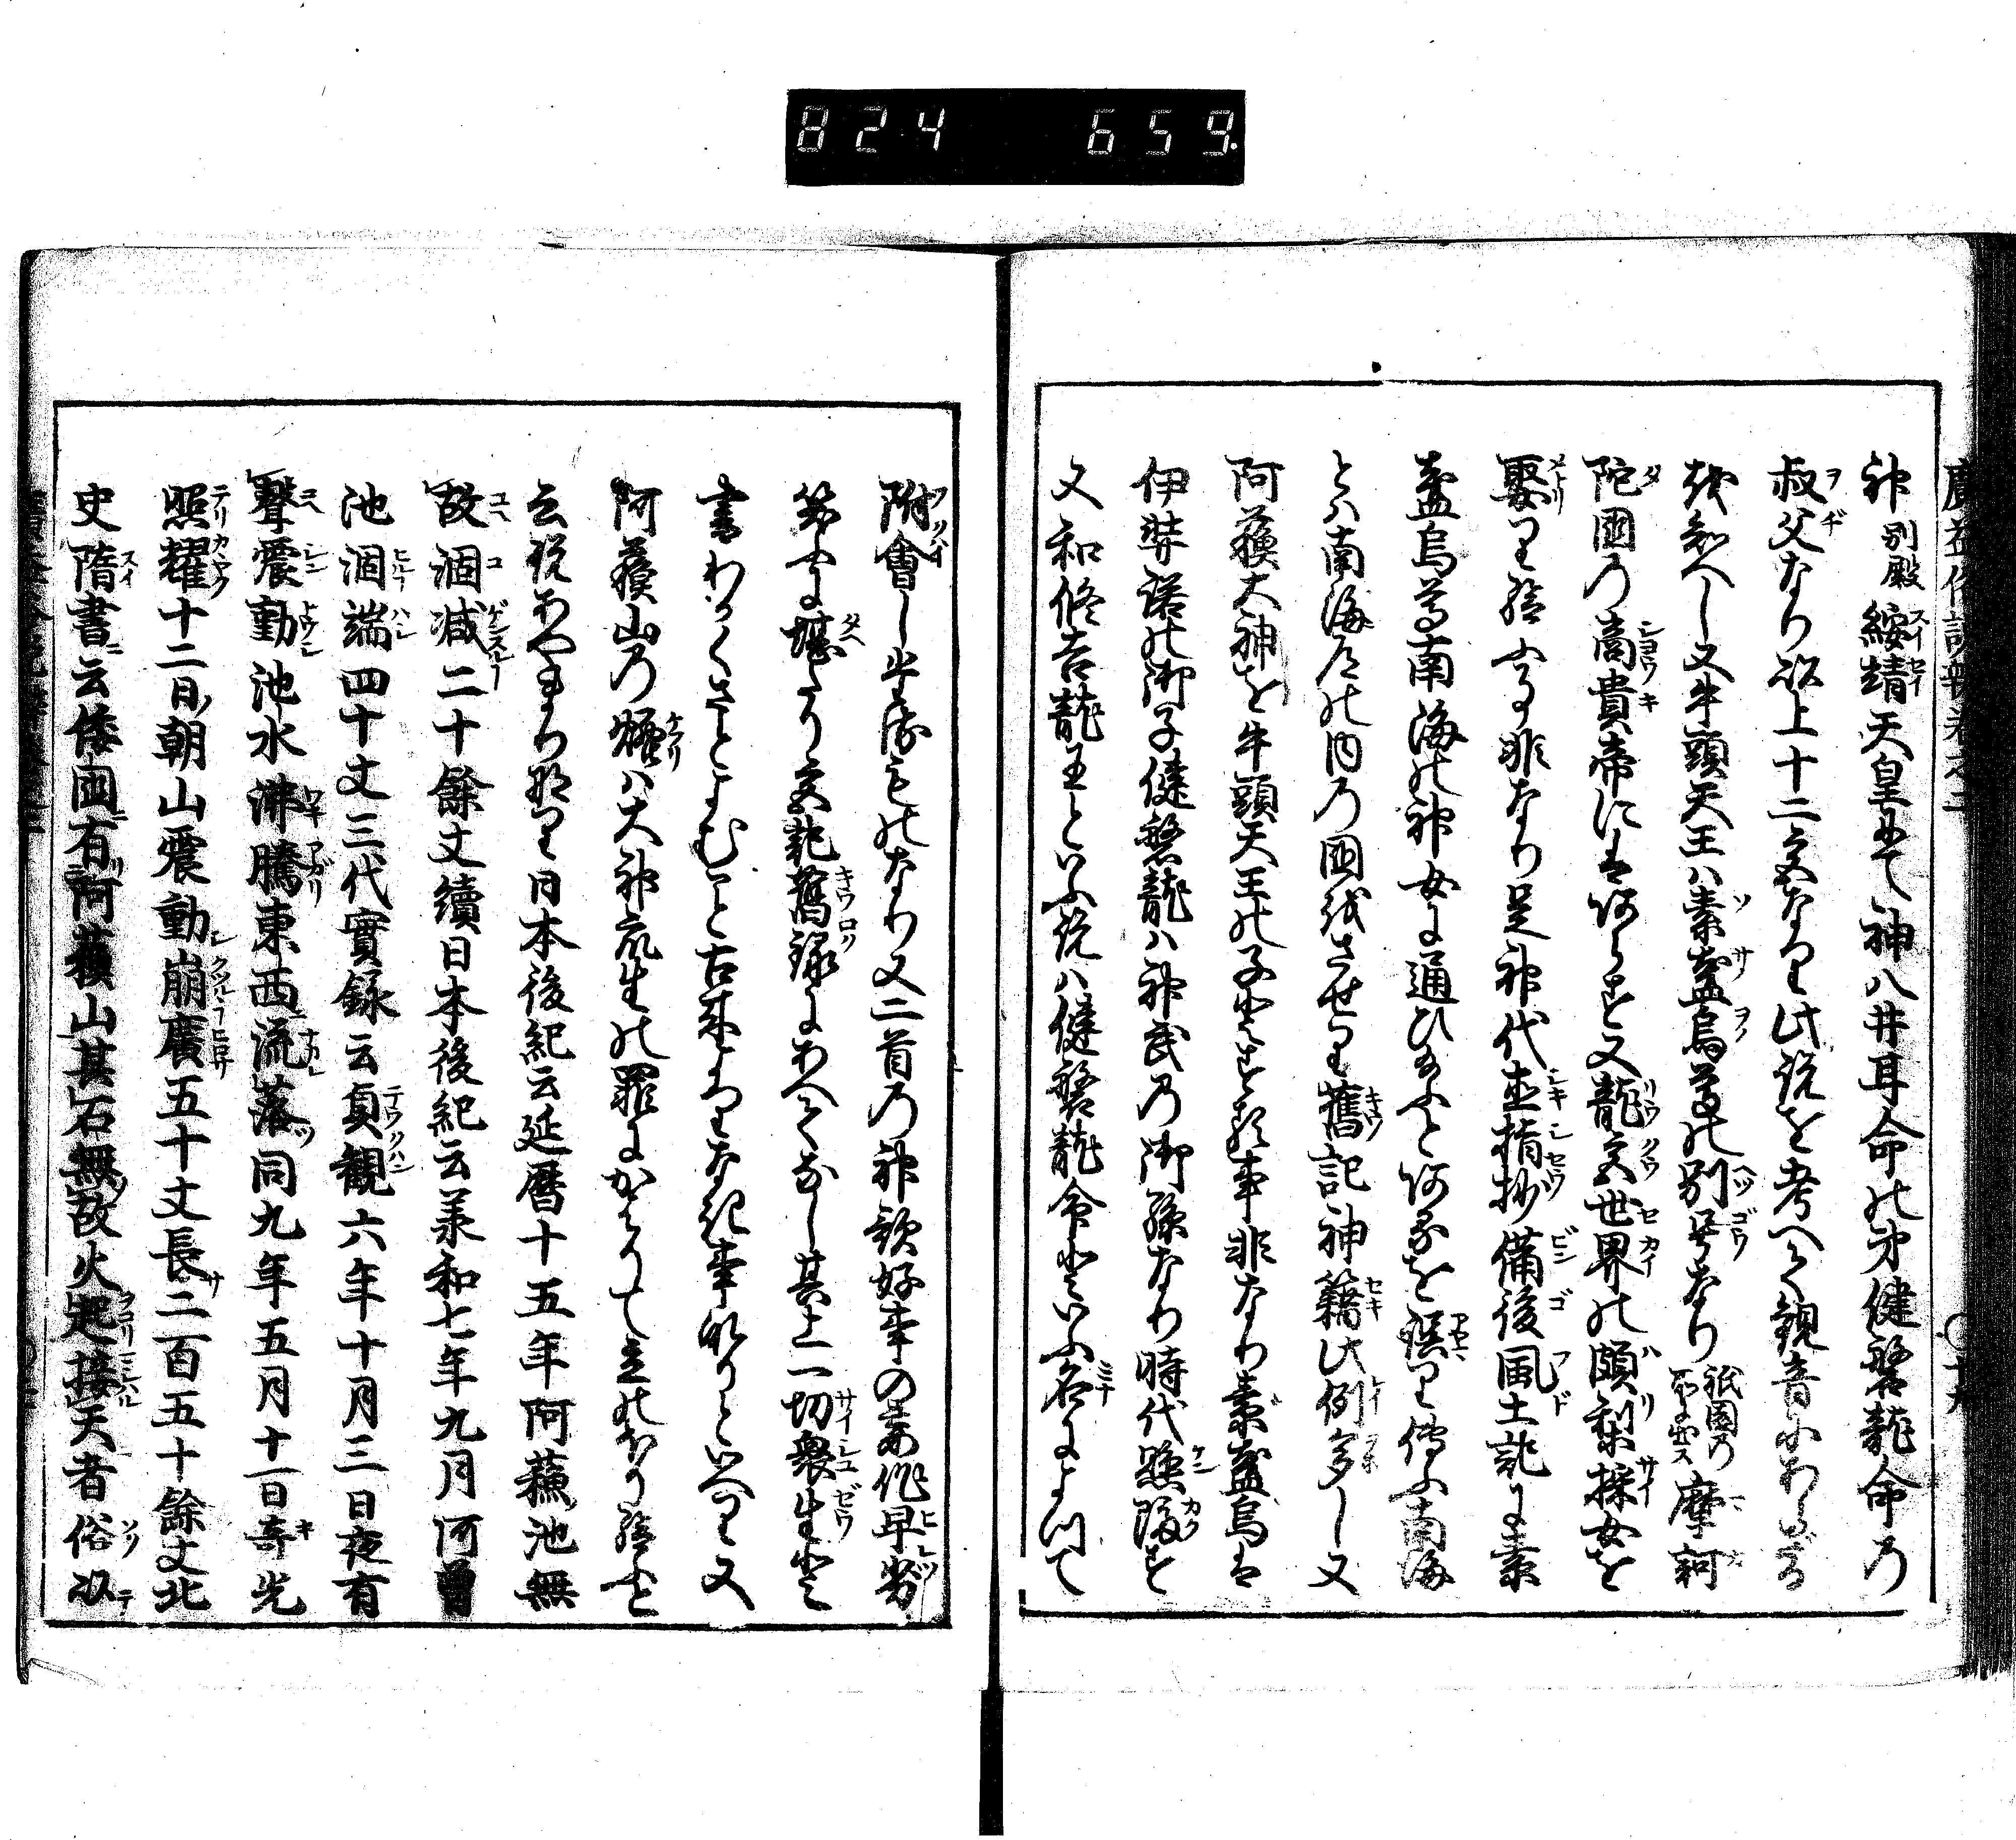 824 659.
神 別殿 綏靖天皇にて神八井耳命の弟健磐龍命の
叔父なり以上十二宮なり此説を考へて観音にあらざる
を知へし又牛頭天王ハ素盞烏尊の別号なり 祇園の 摩訶
陀国の商貴帝にはあらず又龍宮世界の頗梨採女を
娶り給ふる非なり是神代直指抄備後風土記に素
盞烏尊南海の神女に通ひ給ふとあるを誤り傳ふ南海
とハ南海道の内の国をさせり舊記神籍此例多し又
阿蘓大神を牛頭天王の子といふ事非なり素盞烏は
伊弉諾の御子健磐龍ハ神武の御孫なり時代懸隔す
又和修吉龍王といふ説ハ健磐龍命といふ名によつて
附會し来るものなり又二首の神歌好事の者作早劣
笑ふに堪たり文乾舊録にあへてなし其上一切衆生と
書わかくさとよむこと古来よりなき事也といへり又
阿蘓山の煙ハ大神衆生の罪にかはりて立のほり給ふと
云説あやまり也日本後紀云延暦十五年阿蘓池無
故涸減二十餘丈續日本後紀云承和七年九月阿曽
池涸端四十丈三代實録云貞観六年十月三日夜有
聲震動池水沸騰東西流落同九年五月十一日奇光
照耀十二日朝山震動崩廣五十丈長二百五十餘丈北
史隋書云倭國有阿蘓山其石無故火起接天者俗以